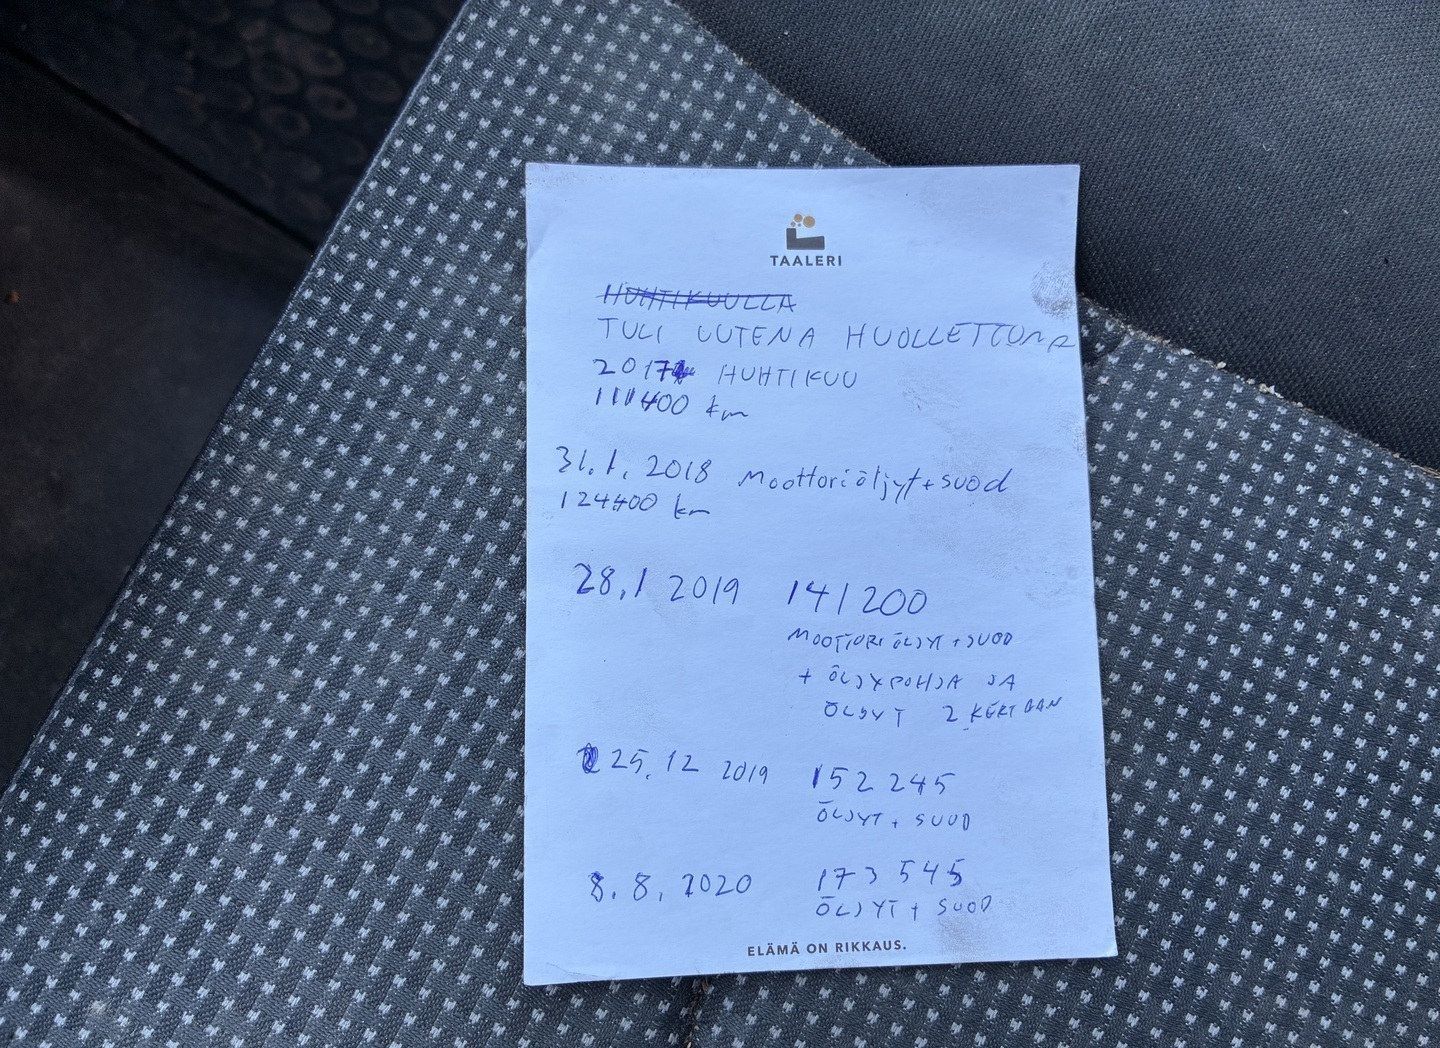 TAALERI
HUHTIKUULLA
TULI UUTENA HUOLLETTUNA
2017 HUHTIKUU
111400 km
31.1.2018 Moottoriöljyt + suod
124400 km
28.1 2019 141200
MOOTTORIÖLJYT + SUOD
+ ÖLJYPOHJA JA
ÖLJYT 2 KERTAAN
25.12 2019 152 245
ÖLJYT + SUOD
8.8.2020 173 545
ÖLJYT + SUOD
ELÄMÄ ON RIKKAUS.